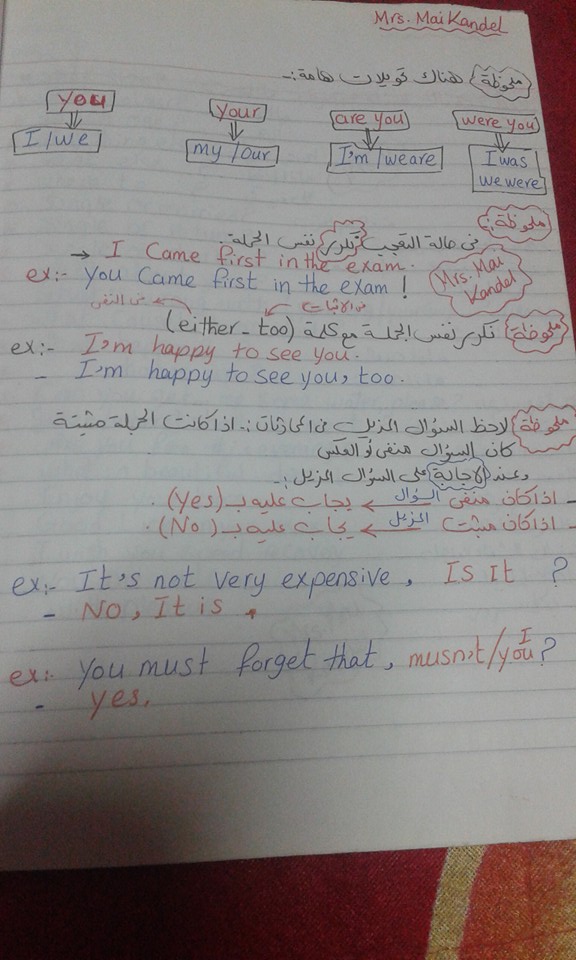 Mrs. Mai Kandel
ملحوظة هناك تحويلات هامة :-
you your are you were you
I / we my / our I'm / we are I was
we were
ملحوظة :
فى حالة التعجب تكرر نفس الجملة .
→ I Came first in the exam.
ex:- you Came first in the exam !
Mrs. Mai
Kandel
فى الاثبات فى النفى
ملحوظة تكرر نفس الجملة مع كلمة (either - too)
ex:- I'm happy to see you.
- I'm happy to see you, too.
ملحوظة لاحظ السؤال المزيل فى المحادثات :- اذا كانت الجملة مثبتة
كان السؤال منفى أو العكس
وعند الاجابة على السؤال المزيل :-
- اذا كان منفى السؤال ← يجاب عليه بـ (Yes) .
- اذا كان مثبت المزيل ← يجاب عليه بـ (No) .
ex:- It's not very expensive, Is It ?
- No, It is .
ex:- you must forget that, musn't / you ?
I
- yes,